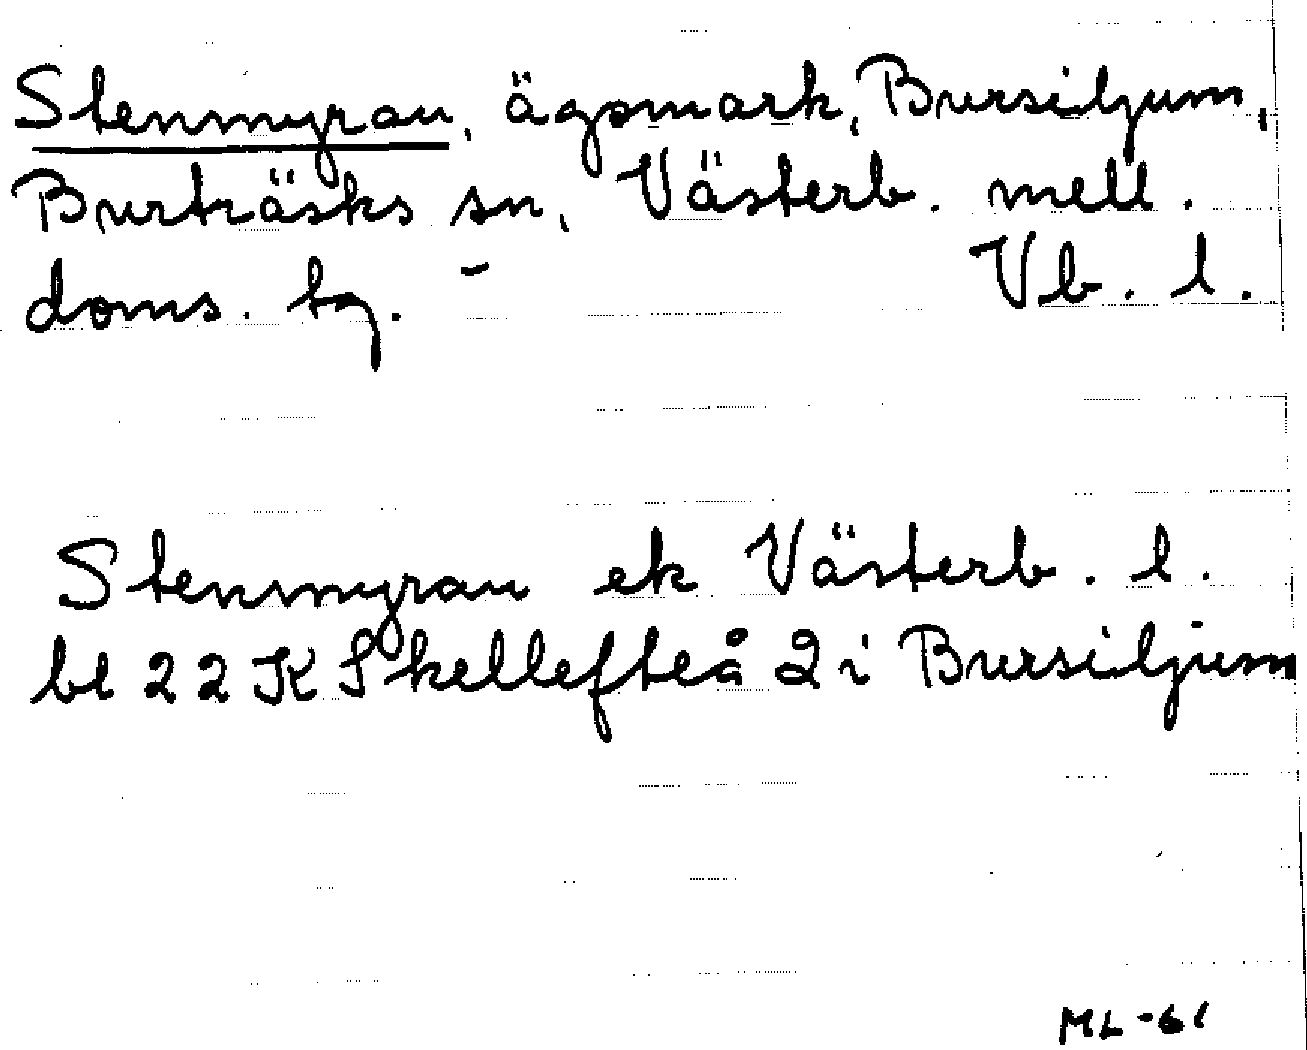 Stenmyran, ägomark, Bursiljum,
Burträsks sn, Västerb. mell.
doms. tg. - Vb. l.
Stenmyran ek Västerb. l.
bl 22 K Skellefteå 2 i Bursiljum
ML-61